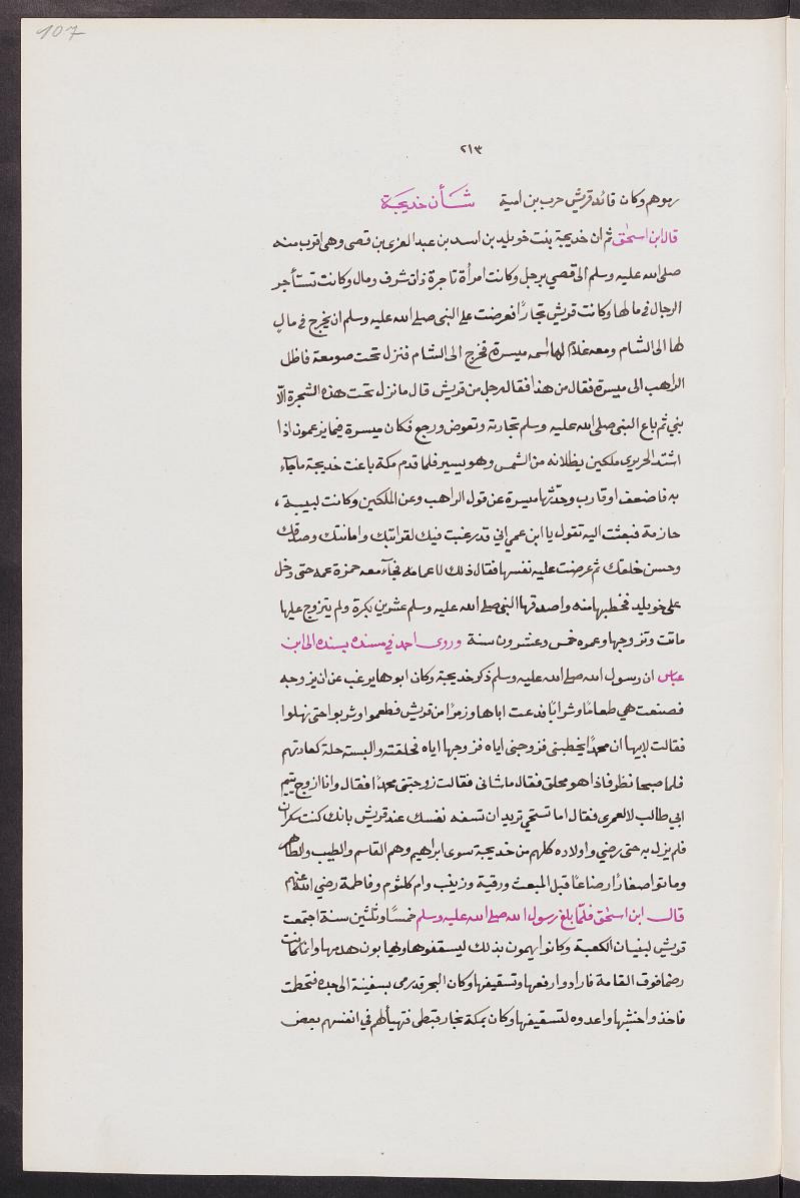 107
٢١٣
رهوهم وكان قائد قريش حرب بن امية شأن خديجة
قال ابن اسحٰق ثم ان خديجة بنت خويلد بن اسد بن عبد العزى بن قصى وهى اقرب منه
صلى الله عليه وسلم الى قصي برجل وكانت امرأة تاجرة ذات شرف ومال وكانت تستأجر
الرجال في مالها وكانت قريش تجارًا فعرضت على النبى صلى الله عليه وسلم ان يخرج في مالٍ
لها الى الشام ومعه غلام لها اسمه ميسرة فخرج الى الشام فنزل تحت صومعة فاطل
الراهب الى ميسرة فقال من هذا فقال رجل من قريش قال ما نزل تحت هذه الشجرة الّا
نبي ثم باع النبى صلى الله عليه وسلم تجارته وتعوض ورجع فكان ميسرة فيما يزعمون اذا
اشتد الحر يرى ملكين يظلانه من الشمس وهو يسير فلما قدم مكة باعت خديجة ما جآء
به فاضعف او قارب وحدّثها ميسرة عن قول الراهب وعن الملكين وكانت لبيبة ،
حازمة فبعثت اليه تقول يا ابن عمي اني قد رغبت فيك لقرابتك وامانتك وصدقك
وحسن خلقك ثم عرضت عليه نفسها فقال ذلك لاعمامه فجآء معه حمزة عمه حتى دخل
على خويلد فخطبها منه واصدقها النبى صلى الله عليه وسلم عشرين بكرة ولم يتزوج عليها
ماتت وتزوجها وعمره خمس وعشرون سنة وروى احمد في مسنده بسنده الى ابن
عباس ان رسول الله صلى الله عليه وسلم ذكر خديجة وكان ابوها يرغب عن ان يزوجه
فصنعت هي طعامًا وشرابًا فدعت اباها وزمرًا من قريش فطعموا وشربوا حتى نهلوا
فقالت لابيها ان محمدًا يخطبنى فزوجنى اياه فزوجها اياه فخلقته والبسته حلة كعادتهم
فلما صحا نظر فاذا هو مخلق فقال ما شانى فقالت زوجتنى محمدًا فقال وانا ازوج يتيم
ابي طالب لا لعمرى فقال اما تستحي تريد ان تسفه نفسك عند قريش بانك كنت سكران
فلم يزل به حتى رضي واولاده كلهم من خديجة سوى ابراهيم وهم القاسم والطيب والطاهر
وماتوا صغارًا رضاعًا قبل المبعث ورقية وزينب وام كلثوم وفاطمة رضي الله عنهم
قال ابن اسحٰق فلمّا بلغ رسول الله صلى الله عليه وسلم خمسًا وثلثين سنة اجتمعت
قريش لبنيان الكعبة وكانوا يهمون بذلك ليسقفوها ويهابون هدمها وانما كانت
رضما فوق القامة فارادوا رفعها وتسقيفها وكان البحر قد رمى بسفينة الى جدة فتحطمت
فاخذوا خشبها واعدوه لتسقيفها وكان بمكة نجار قبطى فتهيأ لهم في انفسهم بعض